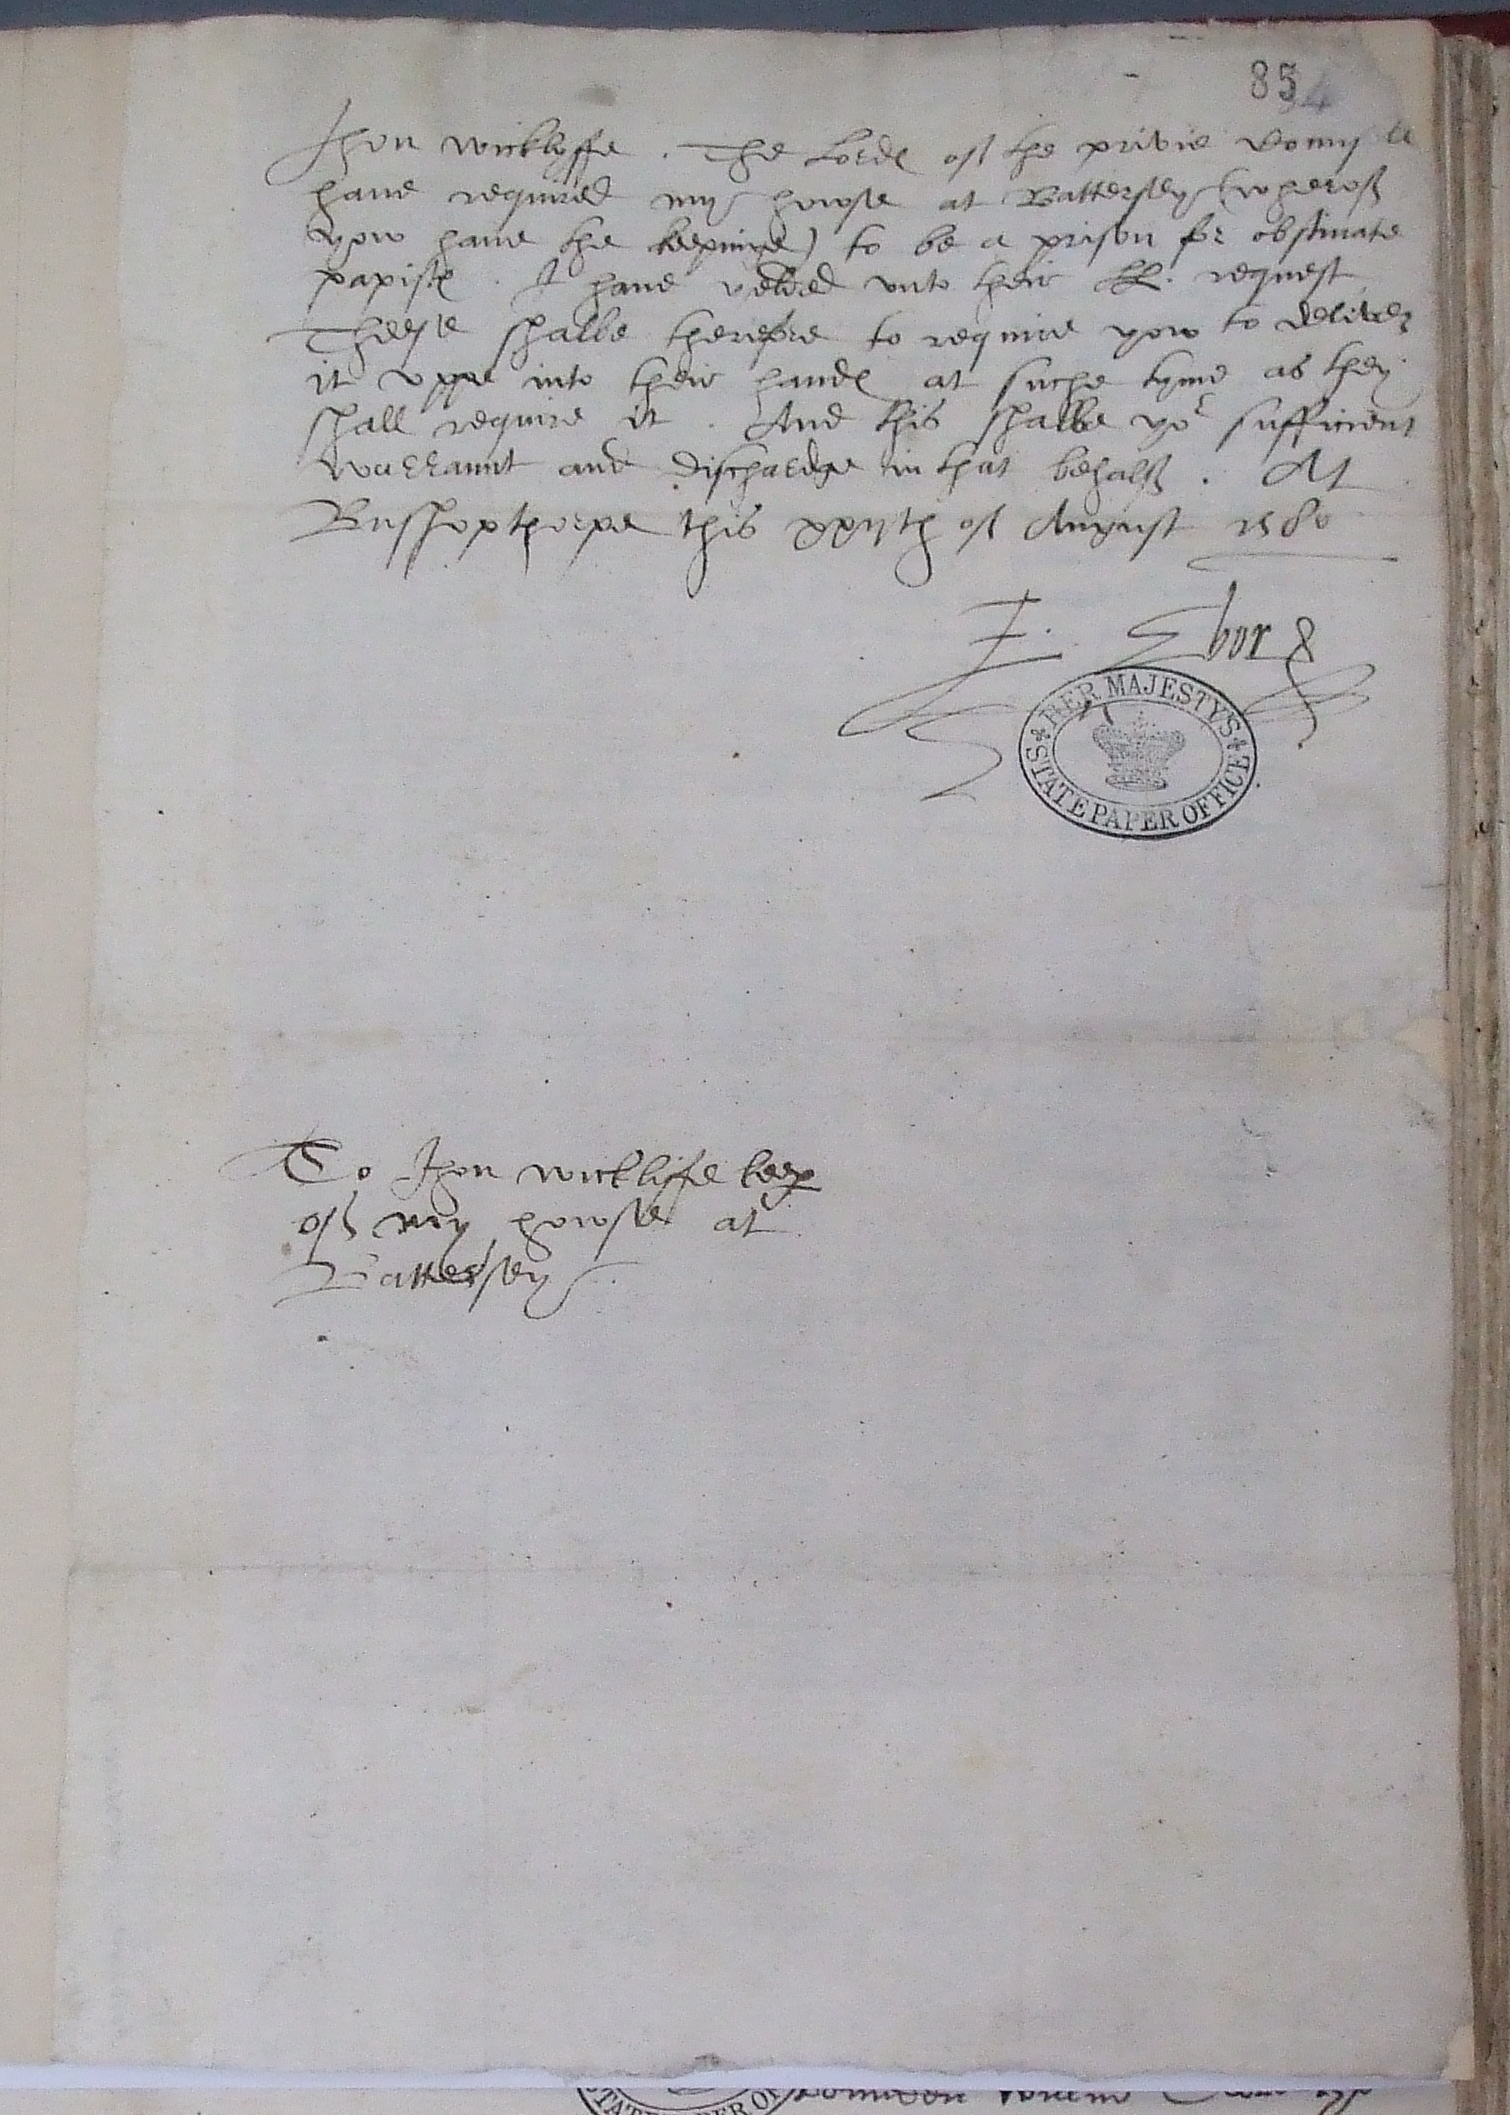 85
Jhon Wicklyffe . The Lordes off the privie
have required my howse at Battersey (wheroff
yow have the kepinge) to be a prison for obstinate
papistes . I have yelded unto their LL. request
Theese shalbe therefore to require yow to deliver
it uppe into their handes at suche tyme as they
shall require it . And this shalbe yor sufficient
warraunt and dischardge in that behalff . At
Busshopthorpe this xxijth off August 1580
E. Ebor
HER MAJESTY'S STATE PAPER OFFICE
To Jhon Wickliffe keper
off my howse at
Battersey
STATE PAPER OFFICE